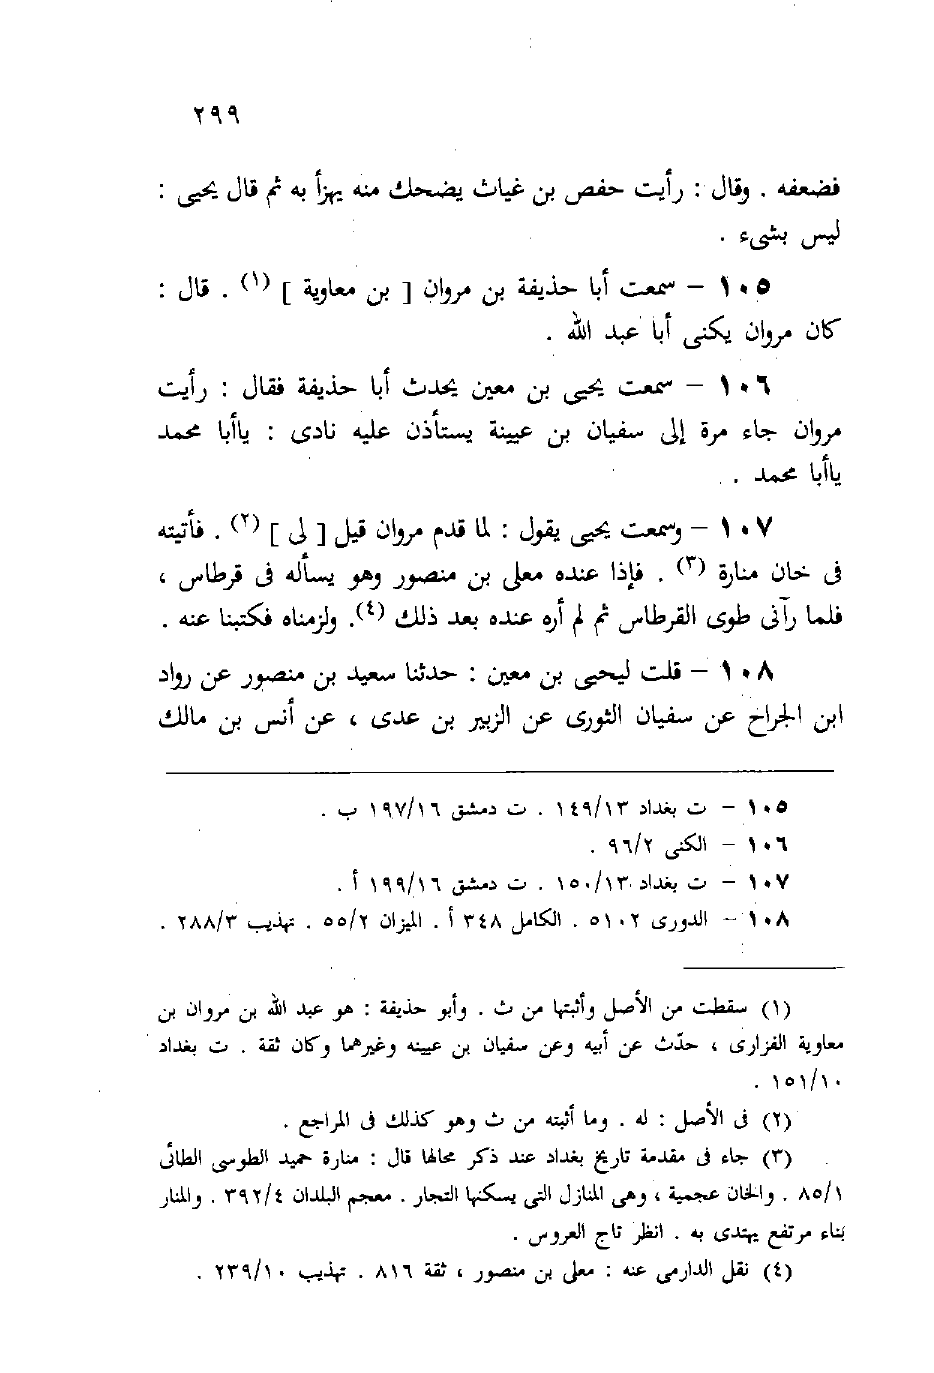 ٢٩٩
فضعفه . وقال : رأيت حفص بن غياث يضحك منه يهزأ به ثم قال يحيى :
ليس بشىء .
١٠٥ – سمعت أبا حذيفة بن مروان [ بن معاوية ] (١) . قال :
كان مروان يكنى أبا عبد الله .
١٠٦ – سمعت يحيى بن معين يحدث أبا حذيفة فقال : رأيت
مروان جاء مرة إلى سفيان بن عيينة يستأذن عليه نادى : ياأبا محمد
ياأبا محمد .
١٠٧ – وسمعت يحيى يقول : لما قدم مروان قيل [ لى ] (٢) . فأتيته
فى خان منارة (٣) . فإذا عنده معلى بن منصور وهو يسأله فى قرطاس ،
فلما رآنى طوى القرطاس ثم لم أره عنده بعد ذلك (٤). ولزمناه فكتبنا عنه .
١٠٨ – قلت ليحيى بن معين : حدثنا سعيد بن منصور عن رواد
ابن الجراح عن سفيان الثورى عن الزبير بن عدى ، عن أنس بن مالك
١٠٥ – ت بغداد ١٤٩/١٣ . ت دمشق ١٩٧/١٦ ب .
١٠٦ – الكنى ٩٦/٢ .
١٠٧ – ت بغداد ١٥٠/١٣ . ت دمشق ١٩٩/١٦ أ .
١٠٨ – الدورى ٥١٠٢ . الكامل ٣٤٨ أ . الميزان ٥٥/٢ . تهذيب ٢٨٨/٣ .
(١) سقطت من الأصل وأثبتها من ث . وأبو حذيفة : هو عبد الله بن مروان بن
معاوية الفزارى ، حدّث عن أبيه وعن سفيان بن عيينه وغيرهما وكان ثقة . ت بغداد
١٥١/١٠ .
(٢) فى الأصل : له . وما أثبته من ث وهو كذلك فى المراجع .
(٣) جاء فى مقدمة تاريخ بغداد عند ذكر محالها قال : منارة حميد الطوسى الطائى
٨٥/١ . والخان عجمية ، وهى المنازل التى يسكنها التجار . معجم البلدان ٣٩٢/٤ . والمنار
بناء مرتفع يهتدى به . انظر تاج العروس .
(٤) نقل الدارمى عنه : معلى بن منصور ، ثقة ٨١٦ . تهذيب ٢٣٩/١٠ .